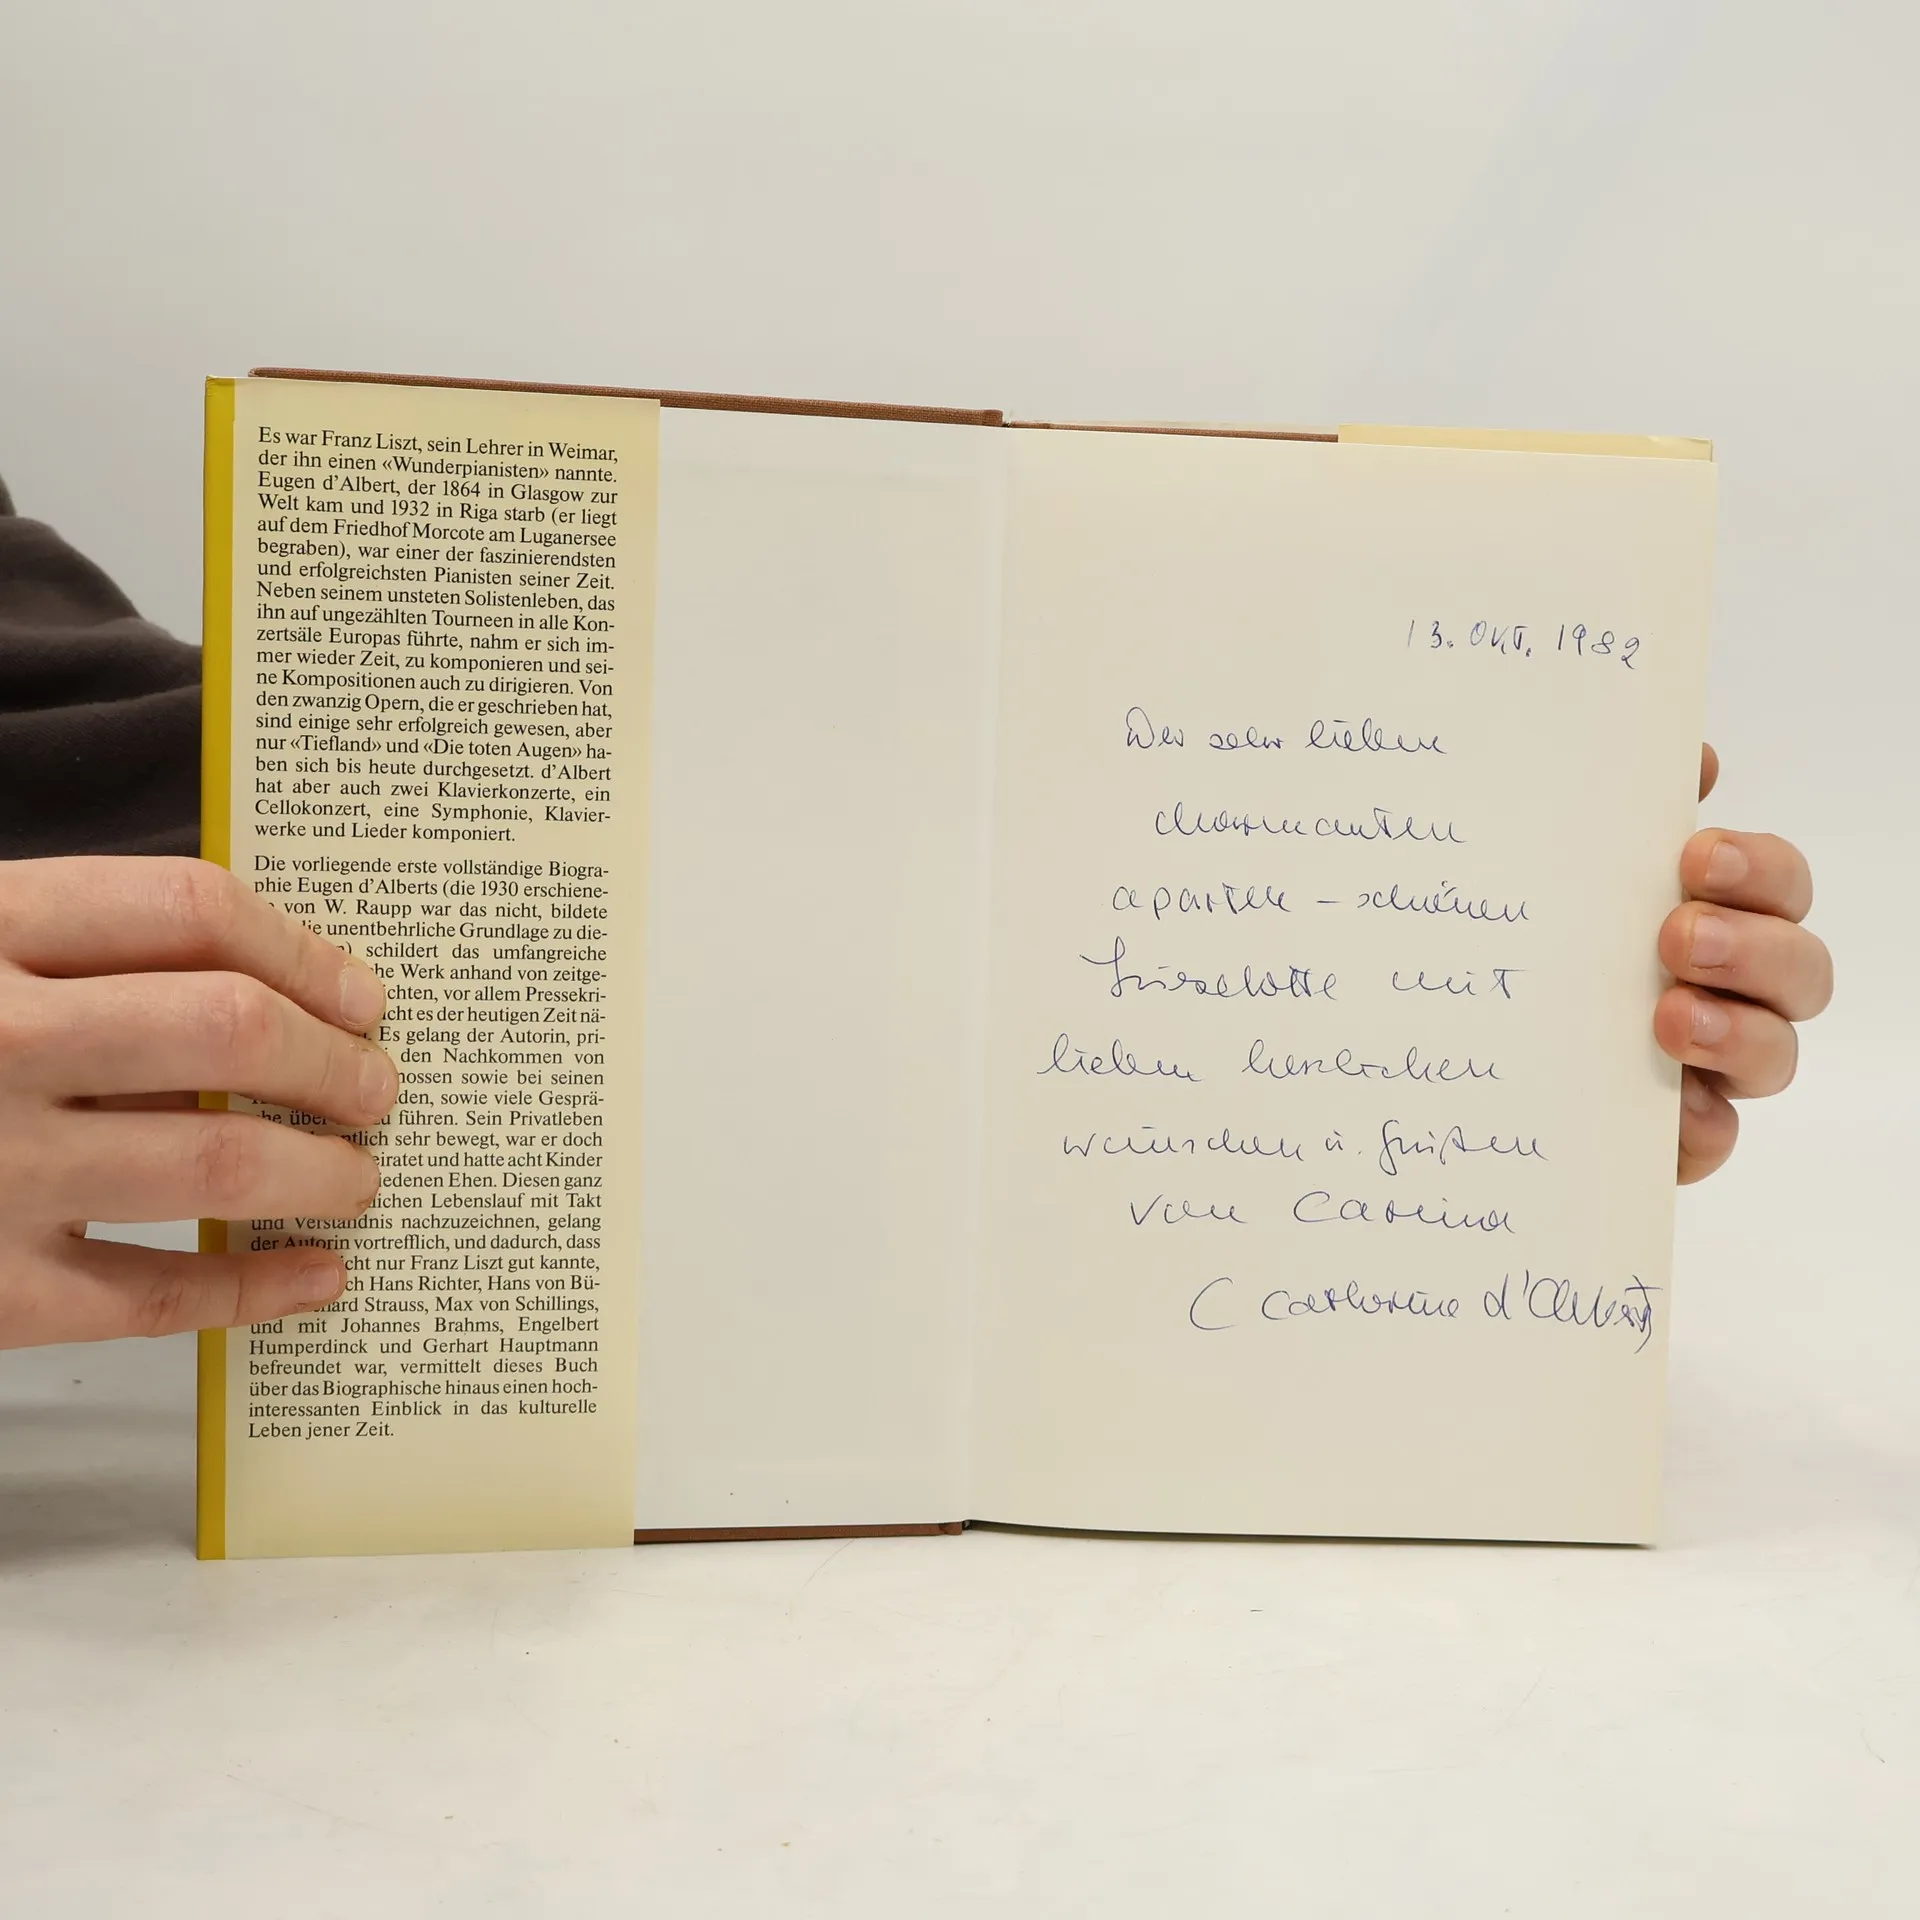 Es war Franz Liszt, sein Lehrer in Weimar,
der ihn einen «Wunderpianisten» nannte.
Eugen d'Albert, der 1864 in Glasgow zur
Welt kam und 1932 in Riga starb (er liegt
auf dem Friedhof Morcote am Luganersee
begraben), war einer der faszinierendsten
und erfolgreichsten Pianisten seiner Zeit.
Neben seinem unsteten Solistenleben, das
ihn auf ungezählten Tourneen in alle Kon-
zertsäle Europas führte, nahm er sich im-
mer wieder Zeit, zu komponieren und sei-
ne Kompositionen auch zu dirigieren. Von
den zwanzig Opern, die er geschrieben hat,
sind einige sehr erfolgreich gewesen, aber
nur «Tiefland» und «Die toten Augen» ha-
ben sich bis heute durchgesetzt. d'Albert
hat aber auch zwei Klavierkonzerte, ein
Cellokonzert, eine Symphonie, Klavier-
werke und Lieder komponiert.
Die vorliegende erste vollständige Biogra-
phie Eugen d'Alberts (die 1930 erschiene-
von W. Raupp war das nicht, bildete
die unentbehrliche Grundlage zu die-
schildert das umfangreiche
Werk anhand von zeitge-
vor allem Pressekri-
es der heutigen Zeit nä-
Es gelang der Autorin, pri-
den Nachkommen von
sowie bei seinen
sowie viele Gesprä-
zu führen. Sein Privatleben
sehr bewegt, war er doch
und hatte acht Kinder
Ehen. Diesen ganz
Lebenslauf mit Takt
und Verständnis nachzuzeichnen, gelang
der Autorin vortrefflich, und dadurch, dass
nicht nur Franz Liszt gut kannte,
Hans Richter, Hans von Bü-
Richard Strauss, Max von Schillings,
und mit Johannes Brahms, Engelbert
Humperdinck und Gerhart Hauptmann
befreundet war, vermittelt dieses Buch
über das Biographische hinaus einen hoch-
interessanten Einblick in das kulturelle
Leben jener Zeit.
13. OKT. 1982
Der sehr lieben
charmanten
aparten – schönen
Lieselotte mit
lieben herzlichen
wünschen u. Grüßen
von Carina
(Catherine d'Albert)